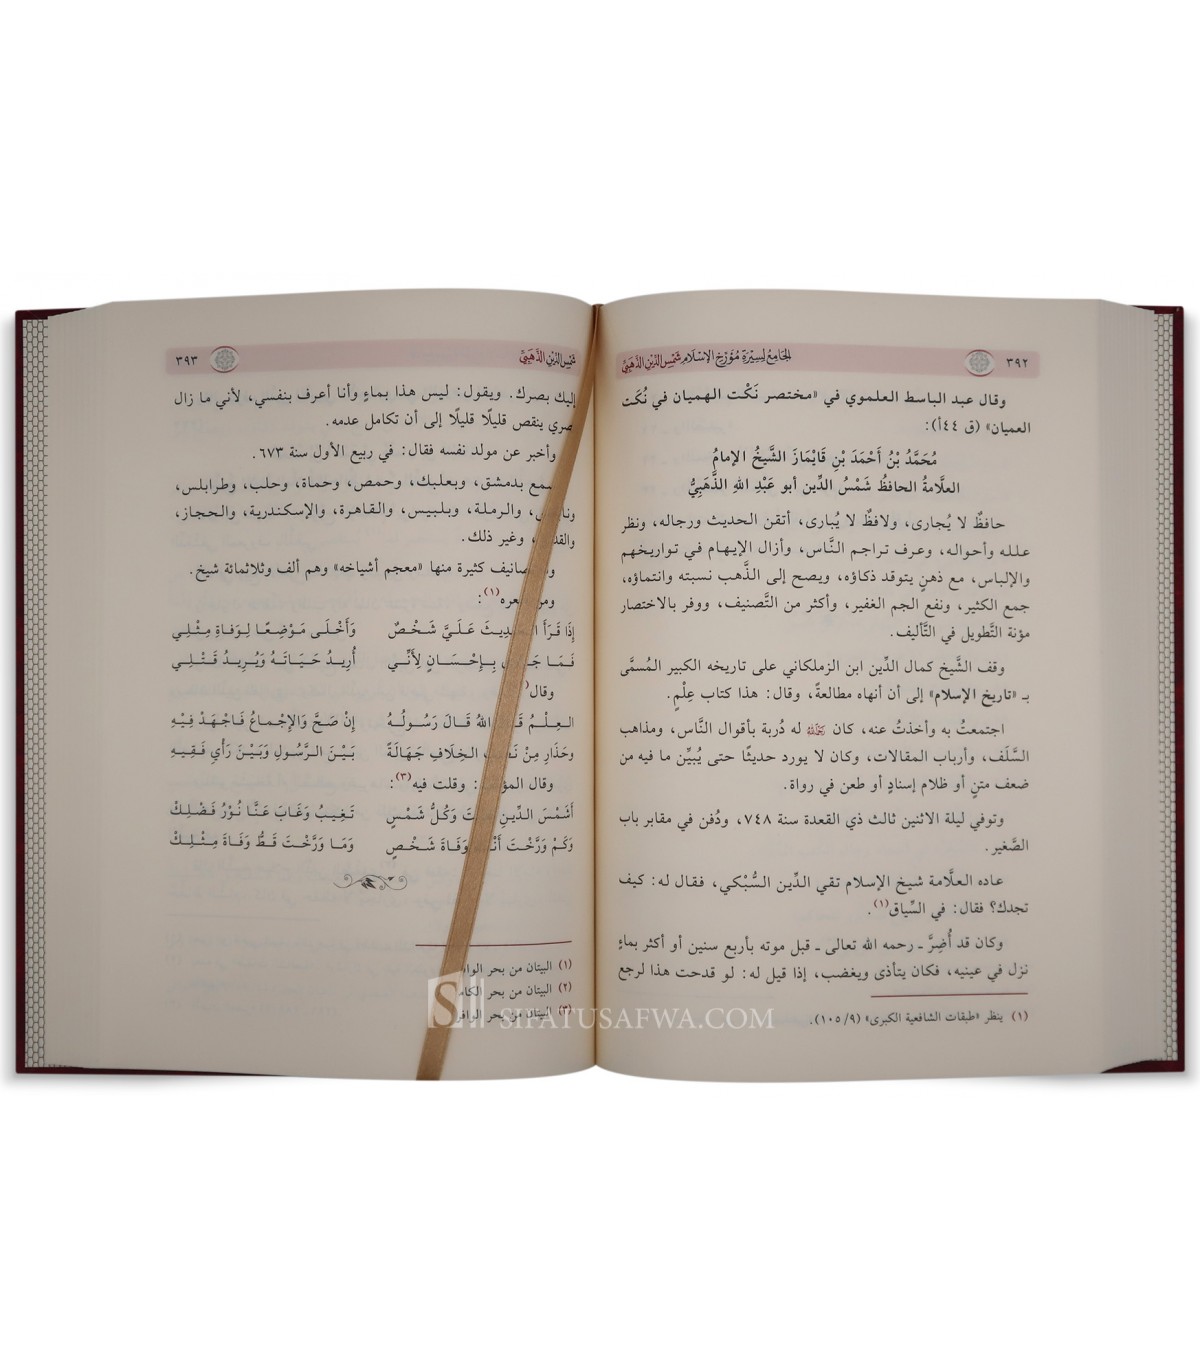 ٣٩٢
الجامع لسيرة مؤرخ الإسلام شمس الدين الذهبي
وقال عبد الباسط العلموي في «مختصر نَكْت الهميان في نُكَت
العميان» (ق ٤٤أ):
مُحَمَّدُ بْنُ أَحْمَدَ بْنِ قَايْمَازَ الشَّيخُ الإمامُ
العلَّامةُ الحافظُ شَمْسُ الدِّين أبو عَبْدِ اللهِ الذَّهَبِيُّ
حافظٌ لا يُجارى، ولافظٌ لا يُبارى، أتقن الحديث ورجاله، ونظر
علله وأحواله، وعرف تراجم النَّاس، وأزال الإيهام في تواريخهم
والإلباس، مع ذهنٍ يتوقد ذكاؤه، ويصح إلى الذَّهب نسبته وانتماؤه،
جمع الكثير، ونفع الجم الغفير، وأكثر من التَّصنيف، ووفر بالاختصار
مؤنة التَّطويل في التَّأليف.
وقف الشَّيخ كمال الدِّين ابن الزملكاني على تاريخه الكبير المُسمَّى
بـ «تاريخ الإسلام» إلى أن أنهاه مطالعةً، وقال: هذا كتاب عِلْمٍ.
اجتمعتُ به وأخذتُ عنه، كان رَحِمَهُ اللهُ له دُربة بأقوال النَّاس، ومذاهب
السَّلَف، وأرباب المقالات، وكان لا يورد حديثًا حتى يُبيِّن ما فيه من
ضعف متنٍ أو ظلام إسنادٍ أو طعن في رواة.
وتوفي ليلة الاثنين ثالث ذي القعدة سنة ٧٤٨، ودُفن في مقابر باب
الصَّغير.
عاده العلَّامة شيخ الإسلام تقي الدِّين السُّبْكي، فقال له: كيف
تجدك؟ فقال: في السِّياق(١).
وكان قد أُضِرَّ ـ رحمه الله تعالى ـ قبل موته بأربع سنين أو أكثر بماءٍ
نزل في عينيه، فكان يتأذى ويغضب، إذا قيل له: لو قدحت هذا لرجع
(١) ينظر «طبقات الشافعية الكبرى» (٩/ ١٠٥).
شمس الدين الذهبي
٣٩٣
إليك بصرك. ويقول: ليس هذا بماءٍ وأنا أعرف بنفسي، لأني ما زال
بصري ينقص قليلًا قليلًا إلى أن تكامل عدمه.
وأخبر عن مولد نفسه فقال: في ربيع الأول سنة ٦٧٣.
سمع بدمشق، وبعلبك، وحمص، وحماة، وحلب، وطرابلس،
والرملة، وبلبيس، والقاهرة، والإسكندرية، والحجاز،
والقدس، وغير ذلك.
تصانيف كثيرة منها «معجم أشياخه» وهم ألف وثلاثمائة شيخ.
ومن شعره(١):
إِذَا قَرَأَ الحَدِيثَ عَلَيَّ شَخْصٌ وَأَخْلَى مَوْضِعًا لِوَفَاةِ مِثْلِي
فَمَا بِإِحْسَانٍ لِأَنِّي أُرِيدُ حَيَاتَهُ وَيُرِيدُ قَتْلِي
وقال
العِلْمُ قَالَ اللهُ قَالَ رَسُولُهُ إِنْ صَحَّ وَالإِجْمَاعُ فَاجْهَدْ فِيْهِ
وَحَذَارِ مِنْ الخِلَافِ جَهَالَةً بَيْنَ الرَّسُولِ وَبَيْنَ رَأْيِ فَقِيهِ
وقال: وقلت فيه(٣):
أَشَمْسَ الدِّينِ وَكُلُّ شَمْسٍ تَغِيبُ وَغَابَ عَنَّا نُوْرُ فَضْلِكْ
وَكَمْ وَرَّخْتَ أَنْتَ وَفَاةَ شَخْصٍ وَمَا وَرَّخْتَ قَطُّ وَفَاةَ مِثْلِكْ
(١) البيتان من بحر
(٢) البيتان من بحر
(٣) البيتان من بحر
SIFATUSAFWA.COM